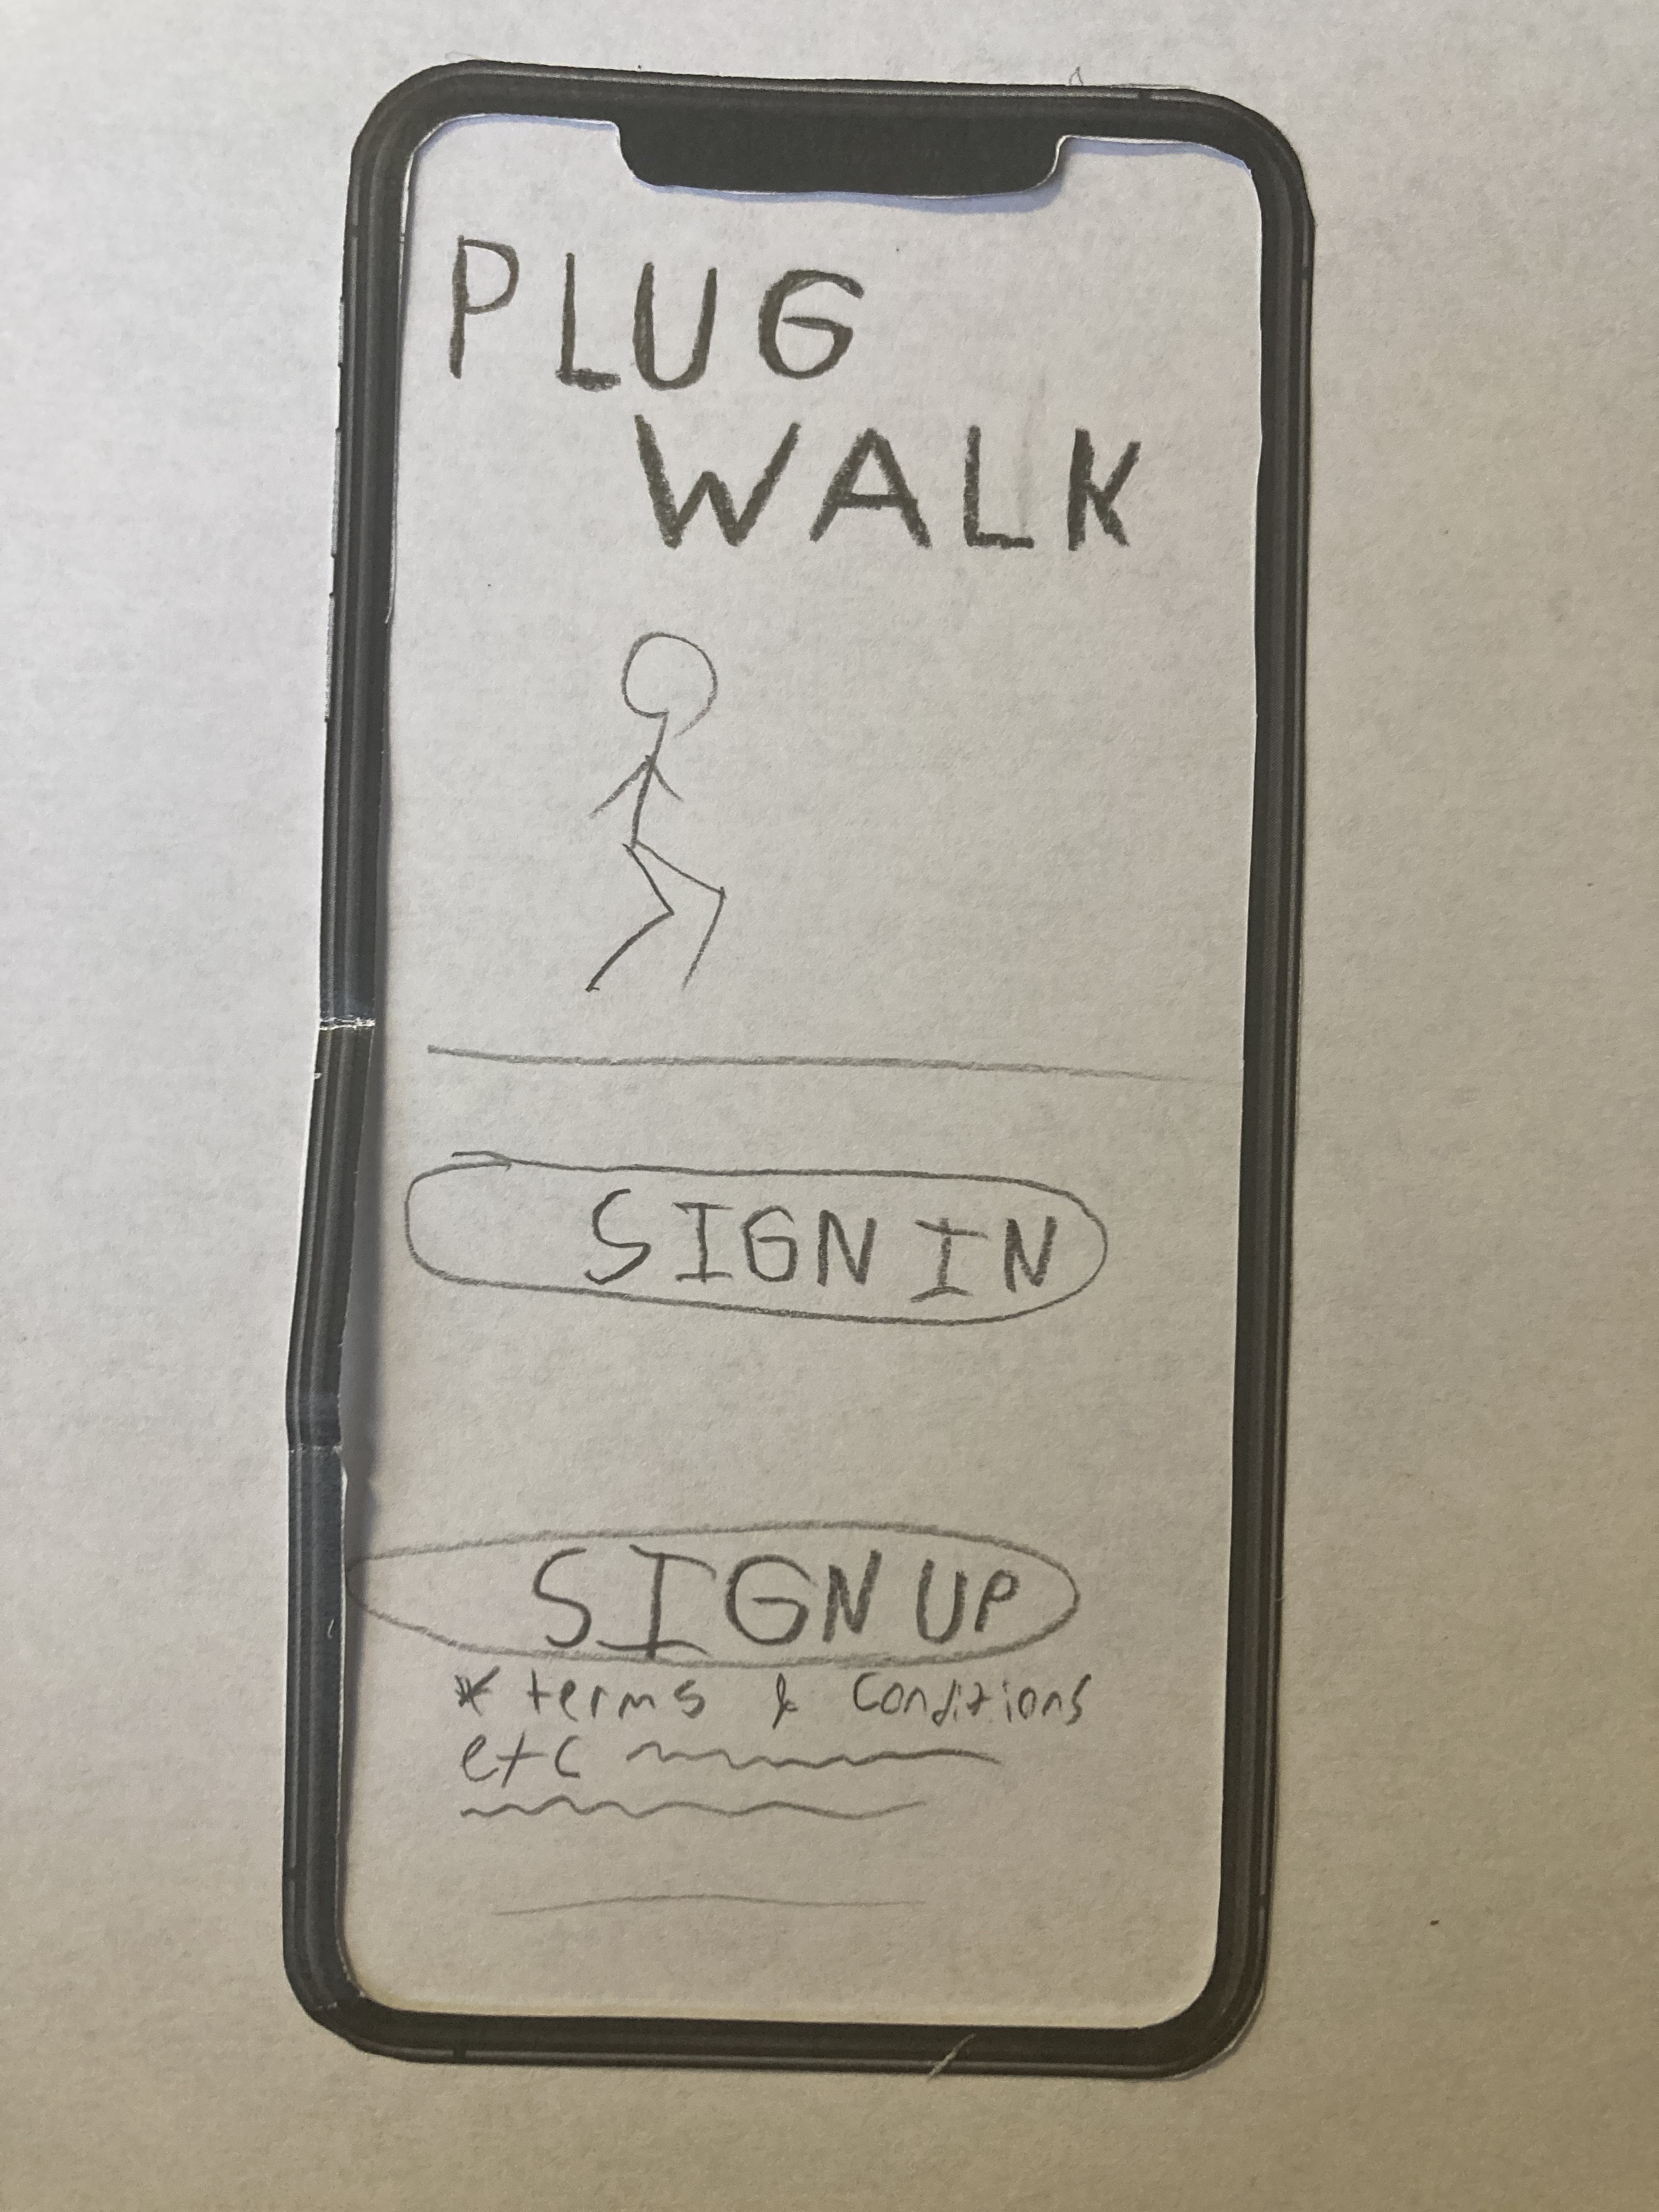 PLUG
WALK
SIGN IN
SIGN UP
* terms & conditions
etc